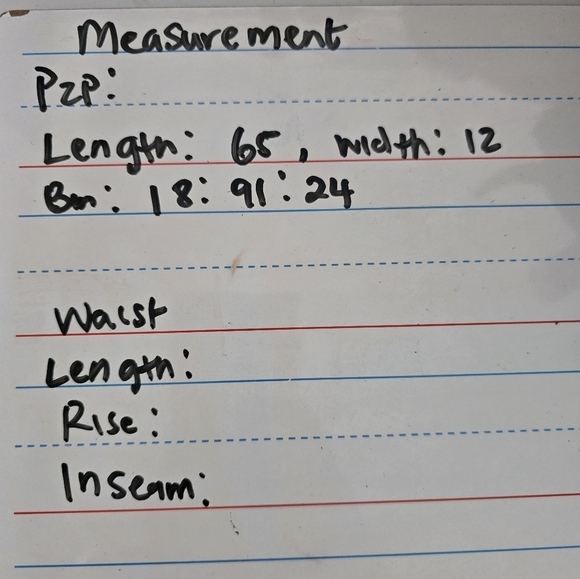 Measurement
P2P:
Length: 65, width: 12
Bm: 18: 91: 24
Waist
Length:
Rise:
Inseam: